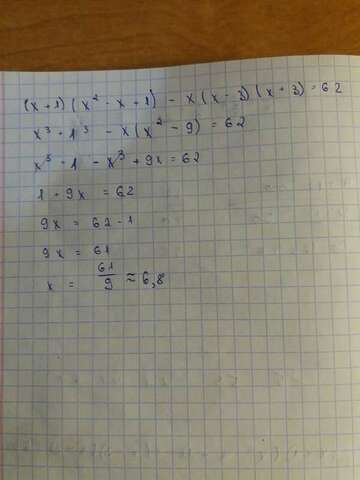 (x+1)(x² - x + 1) - x(x - 3)(x + 3) = 62
x³ + 1³ - x(x² - 9) = 62
x³ + 1 - x³ + 9x = 62
1 + 9x = 62
9x = 62 - 1
9x = 61
x = 61/9 ≈ 6,8